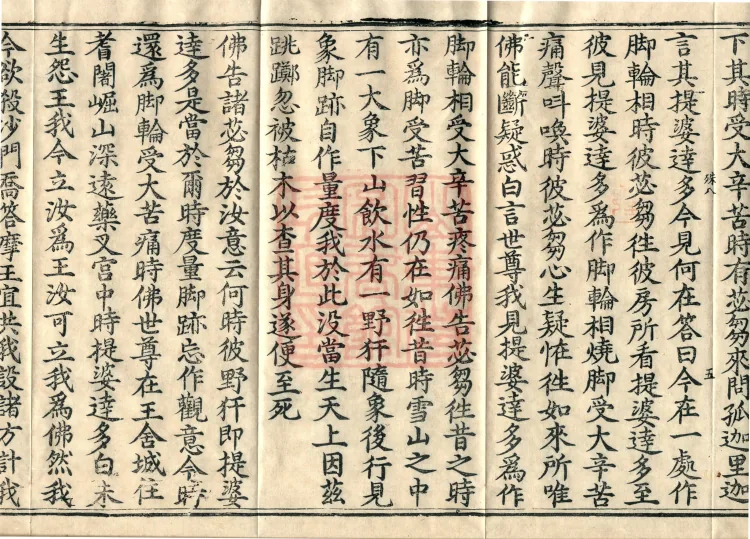 下其時受大辛苦時有苾芻來問孤迦里迦
殊八 五
言其提婆達多今見何在答曰今在一處作
脚輪相時彼苾芻徃彼房所看提婆達多至
彼見提婆達多爲作脚輪相燒脚受大辛苦
痛聲呌喚時彼苾芻心生疑恠徃如來所唯
佛能斷疑惑白言世尊我見提婆達多爲作
脚輪相受大辛苦疼痛佛告苾芻徃昔之時
亦爲脚受苦習性仍在如徃昔時雪山之中
有一大象下山飲水有一野犴隨象後行見
象脚跡自作量度我於此没當生天上因兹
跳躑忽被枯木以查其身遂便至死
佛告諸苾芻於汝意云何時彼野犴即提婆
達多是當於爾時度量脚跡忘作觀意今時
還爲脚輪受大苦痛時佛世尊在王舍城住
耆闍崛山深遠藥叉宮中時提婆達多白未
生怨王我今立汝爲王汝可立我爲佛然我
今欲殺沙門喬答摩王宜共我設諸方計我